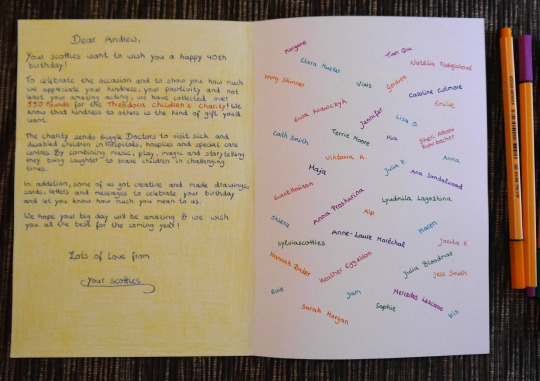 Dear Andrew,
Your scotties want to wish you a happy 40th
birthday!
To celebrate the occasion and to show you how much
we appreciate your kindness, your positivity and not
least your amazing acting, we have collected over
550 Pounds for the Theodora Children's Charity! We
know that kindness to others is the kind of gift you'd
want.
The charity sends Giggle Doctors to visit sick and
disabled children in hospitals, hospices and special care
centres. By combining music, play, magic and storytelling
they bring laughter to brave children in challenging
times.
In addition, some of us got creative and made drawings,
cards, letters and messages to celebrate your birthday
and let you know how much you mean to us.
We hope your big day will be amazing & we wish
you all the best for the coming year!
Lots of Love from
your scotties
Morgane
Tian Qiu
Clara Mueller
Natalia
Immy Skinner
Vixis
Golden
Caroline Cudmore
Ewa Krawczyk
Jennifer
Emilie
Lisa O
Cath Smith
Terrie Moore
Kia
Sheil
Rohrbacher
Viktoria K.
Julia F.
Anna
Maja
Ana Sandalwood
Anna Proshurina
Lyudmila Lagozhina
Alp
Anne-Laure Maréchal
Maren
sylviascotties
Janika K
Hannah
Heather
Julia Bloodmar
Jess Smith
Evie
Jam
Mercedes Lezcano
Sarah Morgan
Sophie